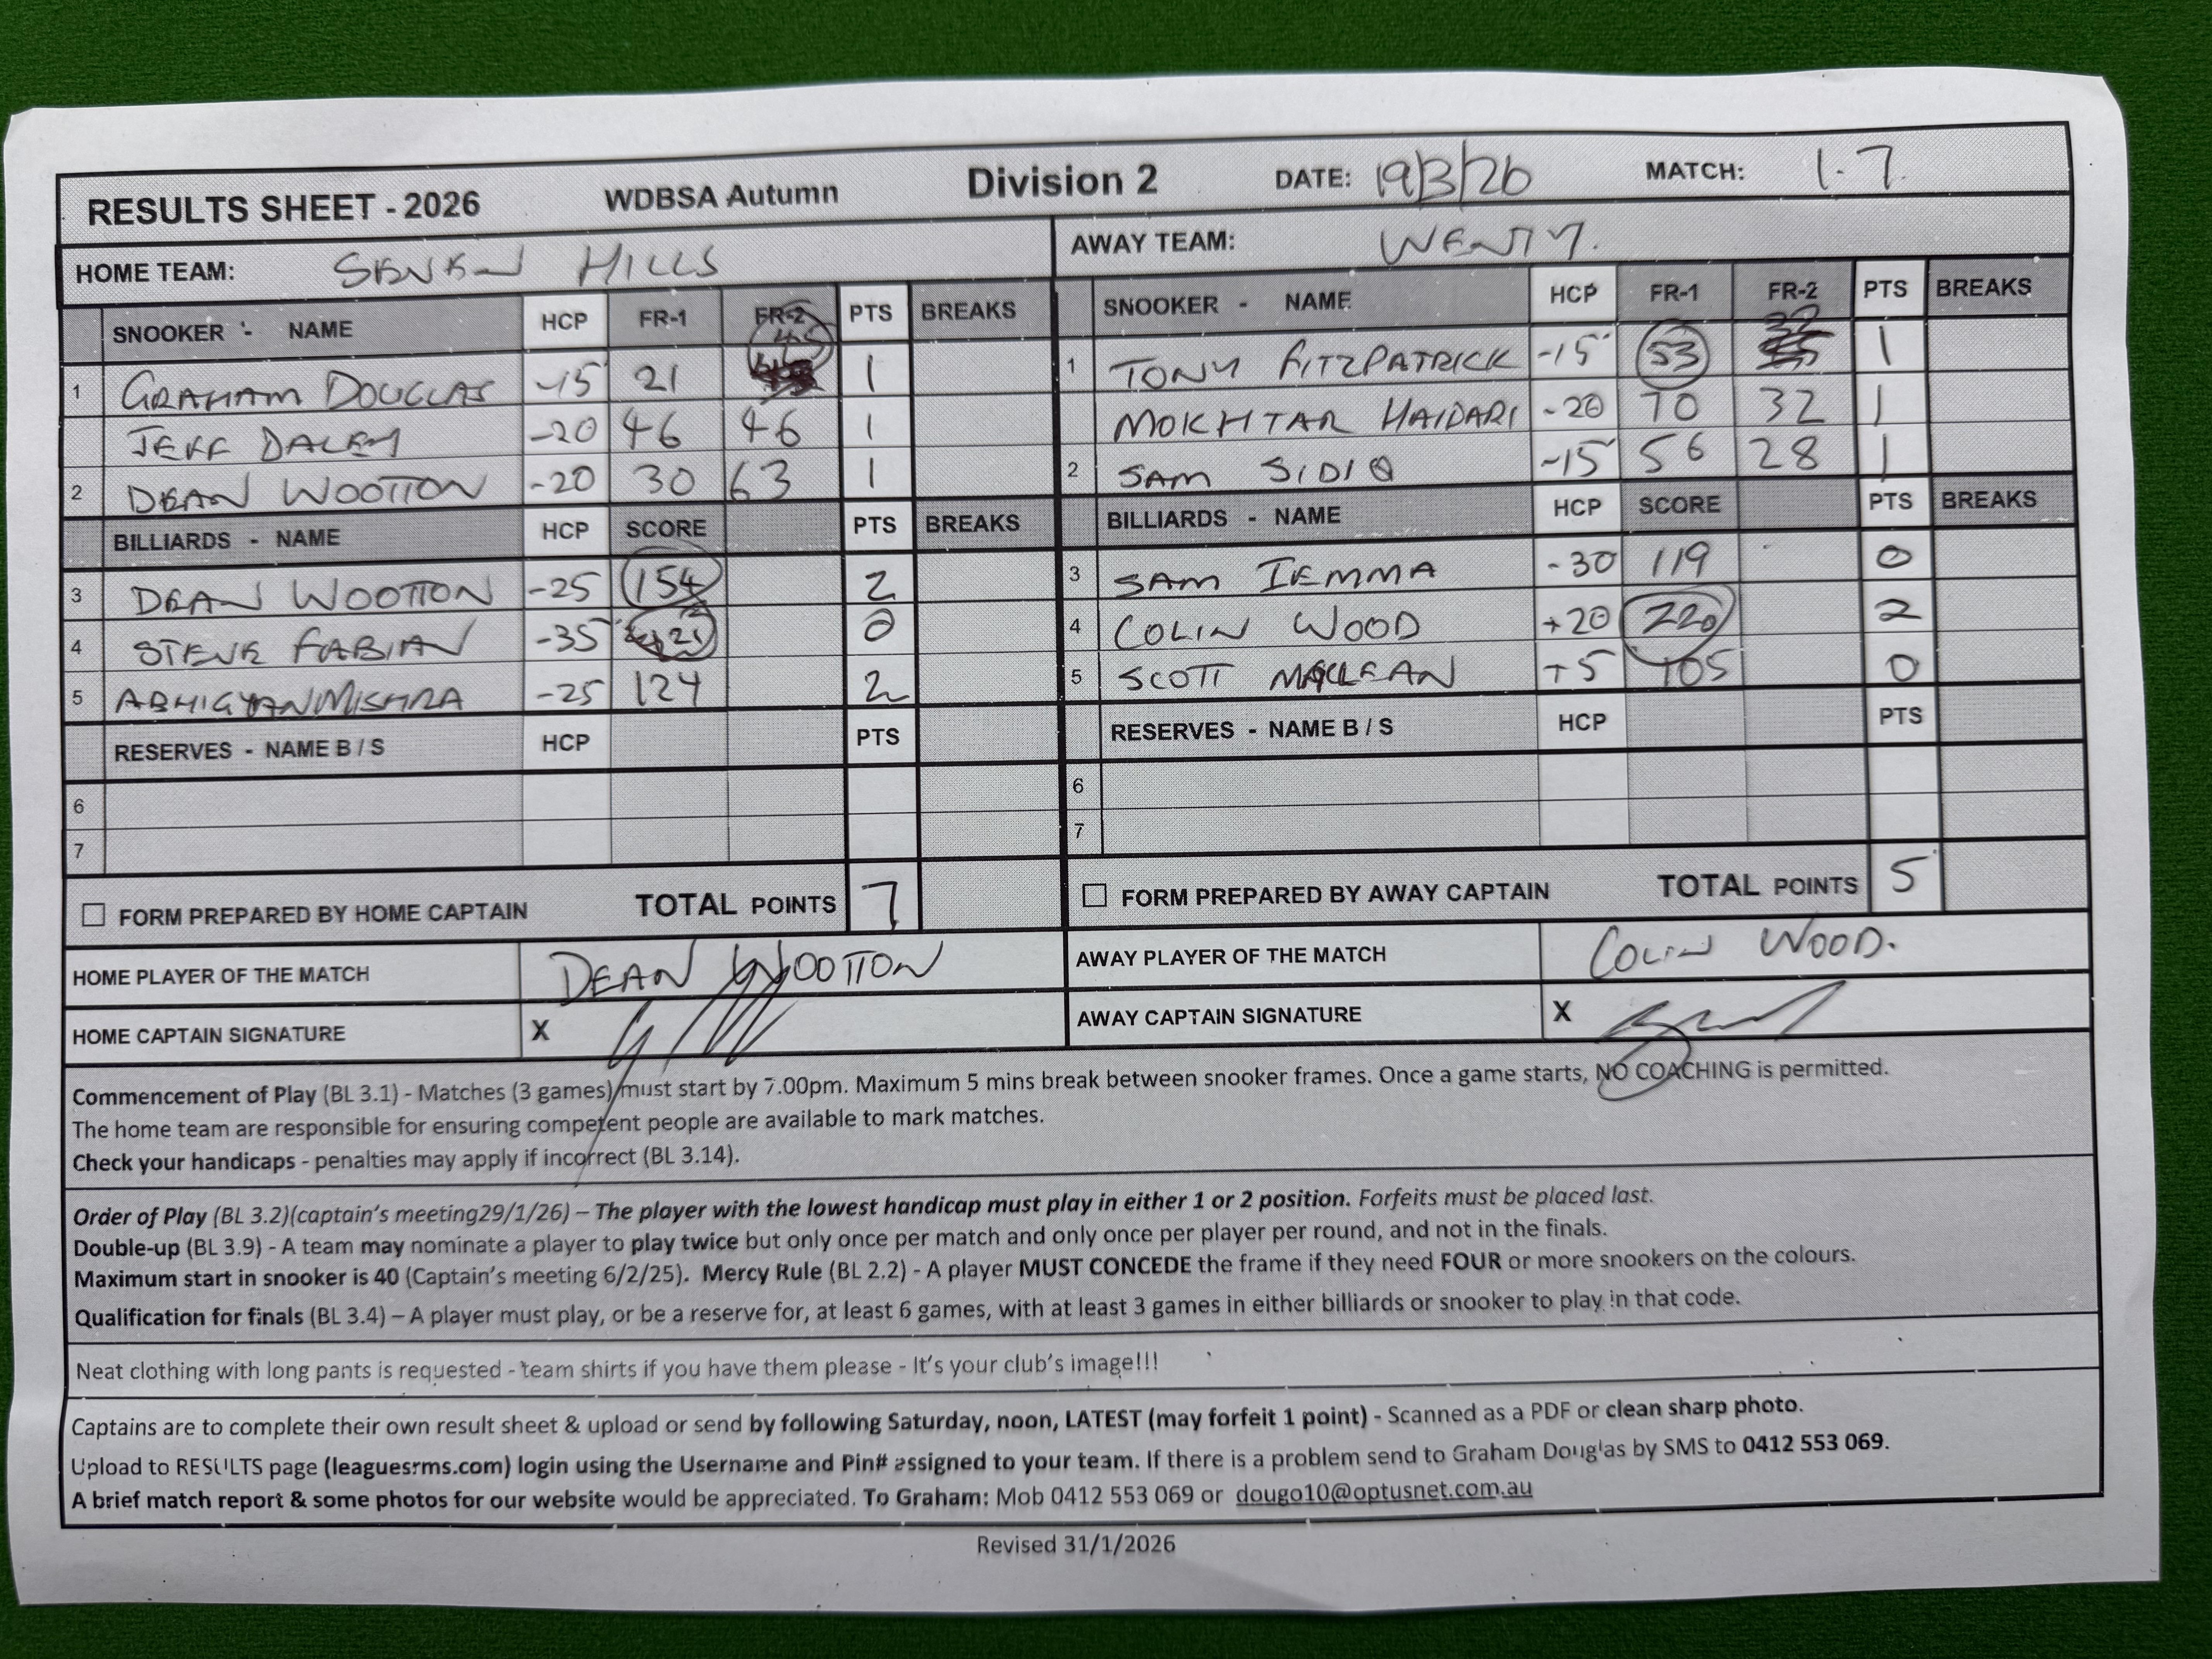 RESULTS SHEET - 2026 WDBSA Autumn Division 2 DATE: 19/3/26 MATCH: 1.7.
HOME TEAM: SEVEN HILLS AWAY TEAM: WENTY.
SNOOKER - NAME HCP FR-1 FR-2 PTS BREAKS SNOOKER - NAME HCP FR-1 FR-2 PTS BREAKS
1 GRAHAM DOUGLAS -15 21 45 1 1 TONY FITZPATRICK -15 53 32 1
JEFF DALEY -20 46 46 1 MOKHTAR HAIDARI -20 70 32 1
2 DEAN WOOTTON -20 30 63 1 2 SAM SIDIQ -15 56 28 1
BILLIARDS - NAME HCP SCORE PTS BREAKS BILLIARDS - NAME HCP SCORE PTS BREAKS
3 DEAN WOOTTON -25 154 2 3 SAM IEMMA -30 119 0
4 STEVE FABIAN -35 0 4 COLIN WOOD +20 220 2
5 ABHIGYAN MISHRA -25 124 2 5 SCOTT MACLEAN +5 105 0
RESERVES - NAME B / S HCP PTS RESERVES - NAME B / S HCP PTS
6 6
7 7
FORM PREPARED BY HOME CAPTAIN TOTAL POINTS 7 FORM PREPARED BY AWAY CAPTAIN TOTAL POINTS 5
HOME PLAYER OF THE MATCH DEAN WOOTTON AWAY PLAYER OF THE MATCH COLIN WOOD.
HOME CAPTAIN SIGNATURE X AWAY CAPTAIN SIGNATURE X
Commencement of Play (BL 3.1) - Matches (3 games) must start by 7.00pm. Maximum 5 mins break between snooker frames. Once a game starts, NO COACHING is permitted.
The home team are responsible for ensuring competent people are available to mark matches.
Check your handicaps - penalties may apply if incorrect (BL 3.14).
Order of Play (BL 3.2)(captain's meeting29/1/26) – The player with the lowest handicap must play in either 1 or 2 position. Forfeits must be placed last.
Double-up (BL 3.9) - A team may nominate a player to play twice but only once per match and only once per player per round, and not in the finals.
Maximum start in snooker is 40 (Captain's meeting 6/2/25). Mercy Rule (BL 2.2) - A player MUST CONCEDE the frame if they need FOUR or more snookers on the colours.
Qualification for finals (BL 3.4) – A player must play, or be a reserve for, at least 6 games, with at least 3 games in either billiards or snooker to play in that code.
Neat clothing with long pants is requested - team shirts if you have them please - It's your club's image!!!
Captains are to complete their own result sheet & upload or send by following Saturday, noon, LATEST (may forfeit 1 point) - Scanned as a PDF or clean sharp photo.
Upload to RESULTS page (leaguesrms.com) login using the Username and Pin# assigned to your team. If there is a problem send to Graham Douglas by SMS to 0412 553 069.
A brief match report & some photos for our website would be appreciated. To Graham: Mob 0412 553 069 or dougo10@optusnet.com.au
Revised 31/1/2026